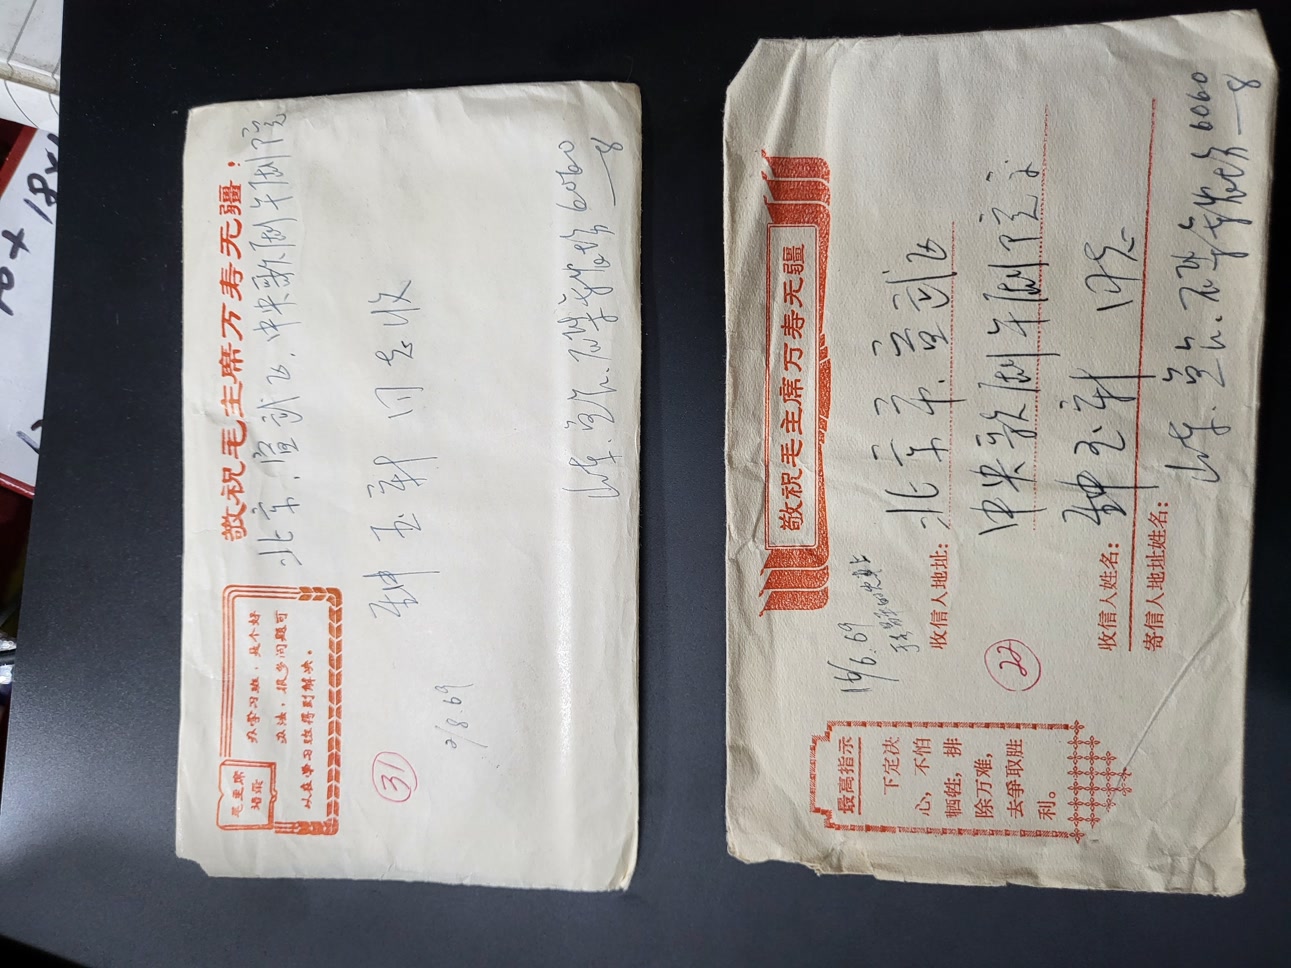 敬祝毛主席万寿无疆！
北京.宣武区.中央歌剧午剧院
毛主席
语录
办学习班，是个好
办法，很多问题可
以在学习班得到解决。
钟玉新同志收
31
2/8.69
6060
8
敬祝毛主席万寿无疆
最高指示
下定决
心，不怕
牺牲，排
除万难，
去争取胜
利。
16/6.69
收信人地址：
北京市.宣武区
中央歌剧午剧院
22
收信人姓名：
钟玉新 同志
寄信人地址姓名：
6060
8
18